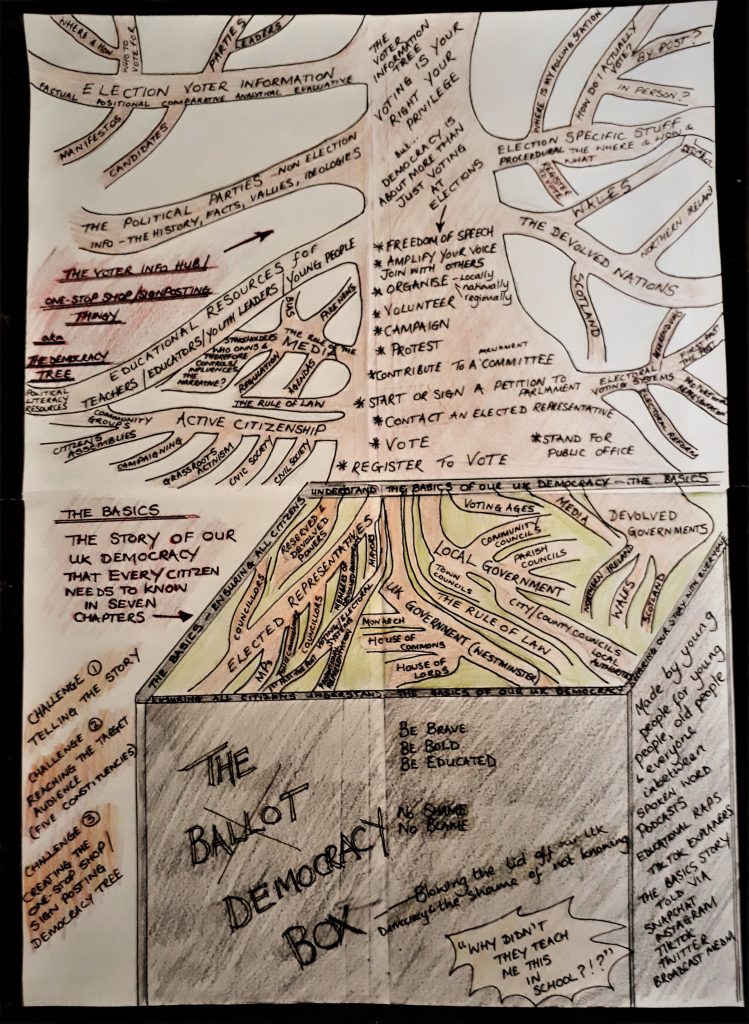 WHERE & HOW
WHO TO
VOTE FOR
PARTIES
LEADERS
ELECTION VOTER INFORMATION
FACTUAL POSITIONAL COMPARATIVE ANALYTICAL EVALUATIVE
MANIFESTOS
CANDIDATES
THE POLITICAL PARTIES - NON ELECTION
INFO - THE HISTORY, FACTS, VALUES, IDEOLOGIES
THE VOTER INFO HUB/
ONE-STOP SHOP/SIGNPOSTING
THINGY
aka
THE DEMOCRACY
TREE
EDUCATIONAL RESOURCES FOR
TEACHERS/EDUCATORS/YOUTH LEADERS/YOUNG PEOPLE
POLITICAL
LITERACY
RESOURCES
BIAS
FAKE NEWS
THE ROLE OF THE
MEDIA
STAKEHOLDERS
WHO OWNS &
THEREFORE
CONTROLS/
INFLUENCES
THE
NARRATIVE?
REGULATION
AGENDAS
THE RULE OF LAW
ACTIVE CITIZENSHIP
COMMUNITY
GROUPS
CITIZEN'S
ASSEMBLIES
CAMPAIGNING
GRASSROOTS
ACTIVISM
CIVIC SOCIETY
CIVIL SOCIETY
THE
VOTER
INFORMATION
TREE
VOTING IS YOUR
RIGHT YOUR
PRIVILEGE
BUT..
DEMOCRACY IS
ABOUT MORE THAN
JUST VOTING
AT
ELECTIONS
* FREEDOM OF SPEECH
* AMPLIFY YOUR VOICE
JOIN WITH OTHERS
* ORGANISE - locally
nationally
regionally
* VOLUNTEER
* CAMPAIGN
* PROTEST
* CONTRIBUTE TO A PARLIAMENT COMMITTEE
* START OR SIGN A PETITION TO
PARLIAMENT
* CONTACT AN ELECTED REPRESENTATIVE
* VOTE
* STAND FOR
PUBLIC OFFICE
* REGISTER TO VOTE
WHERE IS MY POLLING STATION
HOW DO I ACTUALLY
VOTE?
BY POST?
IN PERSON?
ELECTION SPECIFIC STUFF
PROCEDURAL THE WHERE & HOW &
WHAT
REGISTER
TO VOTE
WALES
NORTHERN IRELAND
THE DEVOLVED NATIONS
SCOTLAND
ELECTORAL
VOTING SYSTEMS
REFERENDUMS
FIRST PAST
THE POST
PROPORTIONAL
REPRESENTATION
ELECTORAL
REFORM
THE BASICS
THE STORY OF OUR
UK DEMOCRACY
THAT EVERY CITIZEN
NEEDS TO KNOW
IN SEVEN
CHAPTERS
UNDERSTAND THE BASICS OF OUR UK DEMOCRACY - THE BASICS
THE BASICS - ENSURING ALL CITIZENS
ENSURING ALL CITIZENS UNDERSTAND THE BASICS OF OUR UK DEMOCRACY
SHARING OUR STORY WITH EVERYONE
COUNCILLORS
RESERVED &
DEVOLVED
POWERS
ELECTED REPRESENTATIVES
MAYORS
MPs
COUNCILLORS
UK GOVERNMENT (WESTMINSTER)
MONARCH
HOUSE OF
COMMONS
HOUSE OF
LORDS
THE RULE OF LAW
VOTING AGES
LOCAL GOVERNMENT
COMMUNITY
COUNCILS
PARISH
COUNCILS
TOWN
COUNCILS
CITY/COUNTY COUNCILS
LOCAL
AUTHORITIES
MEDIA
DEVOLVED
GOVERNMENTS
NORTHERN IRELAND
WALES
SCOTLAND
CHALLENGE ①
TELLING THE STORY
CHALLENGE ②
REACHING THE TARGET
AUDIENCE
(FIVE CONSTITUENCIES)
CHALLENGE ③
CREATING THE
ONE-STOP SHOP/
SIGN POSTING
DEMOCRACY TREE
THE
BALLOT
DEMOCRACY
BOX
BE BRAVE
BE BOLD
BE EDUCATED
NO SHAME
NO BLAME
Blowing the lid off our UK
Democracy & the shame of not knowing
"WHY DIDN'T
THEY TEACH
ME THIS
IN
SCHOOL?!?"
Made by young
people for young
people, old people
& everyone
inbetween
SPOKEN WORD
PODCASTS
EDUCATIONAL RAPS
TIKTOK EXPLAINERS
THE BASICS STORY
TOLD VIA
SNAPCHAT
INSTAGRAM
TIKTOK
TWITTER
BROADCAST MEDIA